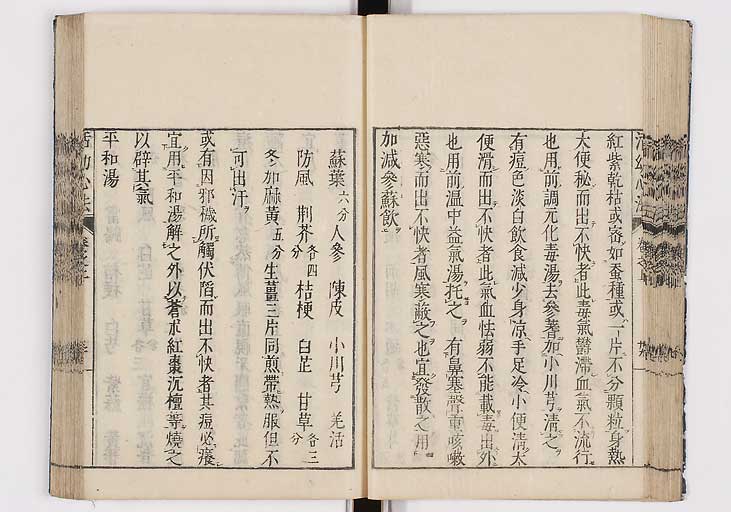 紅紫乾枯或密如蚕種或一片不分顆粒身熱
大便秘而出不快者此毒氣鬱滯血氣不流行
也用前調元化毒湯去參蓍加小川芎清之
有痘色淡白飲食減少身凉手足冷小便清大
便滑而出不快者此氣血怯弱不能載毒出外
也用前温中益氣湯托之 有鼻塞聲重咳嗽
惡寒而出不快者風寒蔽之也宜發散之用
加減參蘇飲
蘇葉六分人參 陳皮 小川芎 羌活
防風 荆芥各四分 桔梗 白芷 甘草各三分
冬加麻黄五分生薑三片同煎帶熱服但不
可出汗
或有因邪穢所觸伏陷而出不快者其痘必癢
宜用平和湯解之外以蒼朮紅棗沉檀等燒之
以辟其氣
平和湯